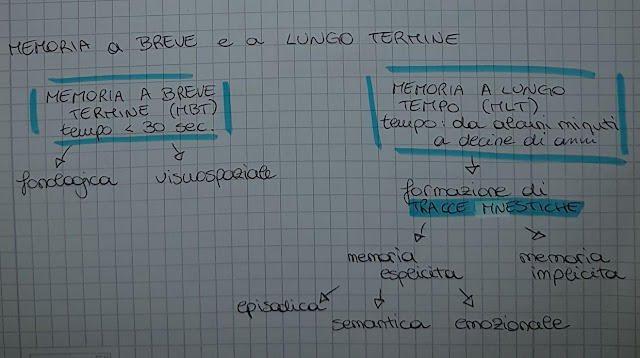 MEMORIA a BREVE e a LUNGO TERMINE
MEMORIA A BREVE
TERMINE (MBT)
tempo < 30 sec.
fonologica
visuospaziale
MEMORIA A LUNGO
TEMPO (MLT)
tempo: da alcuni minuti
a decine di anni
formazione di
TRACCE MNESTICHE
memoria
esplicita
memoria
implicita
episodica
semantica
emozionale